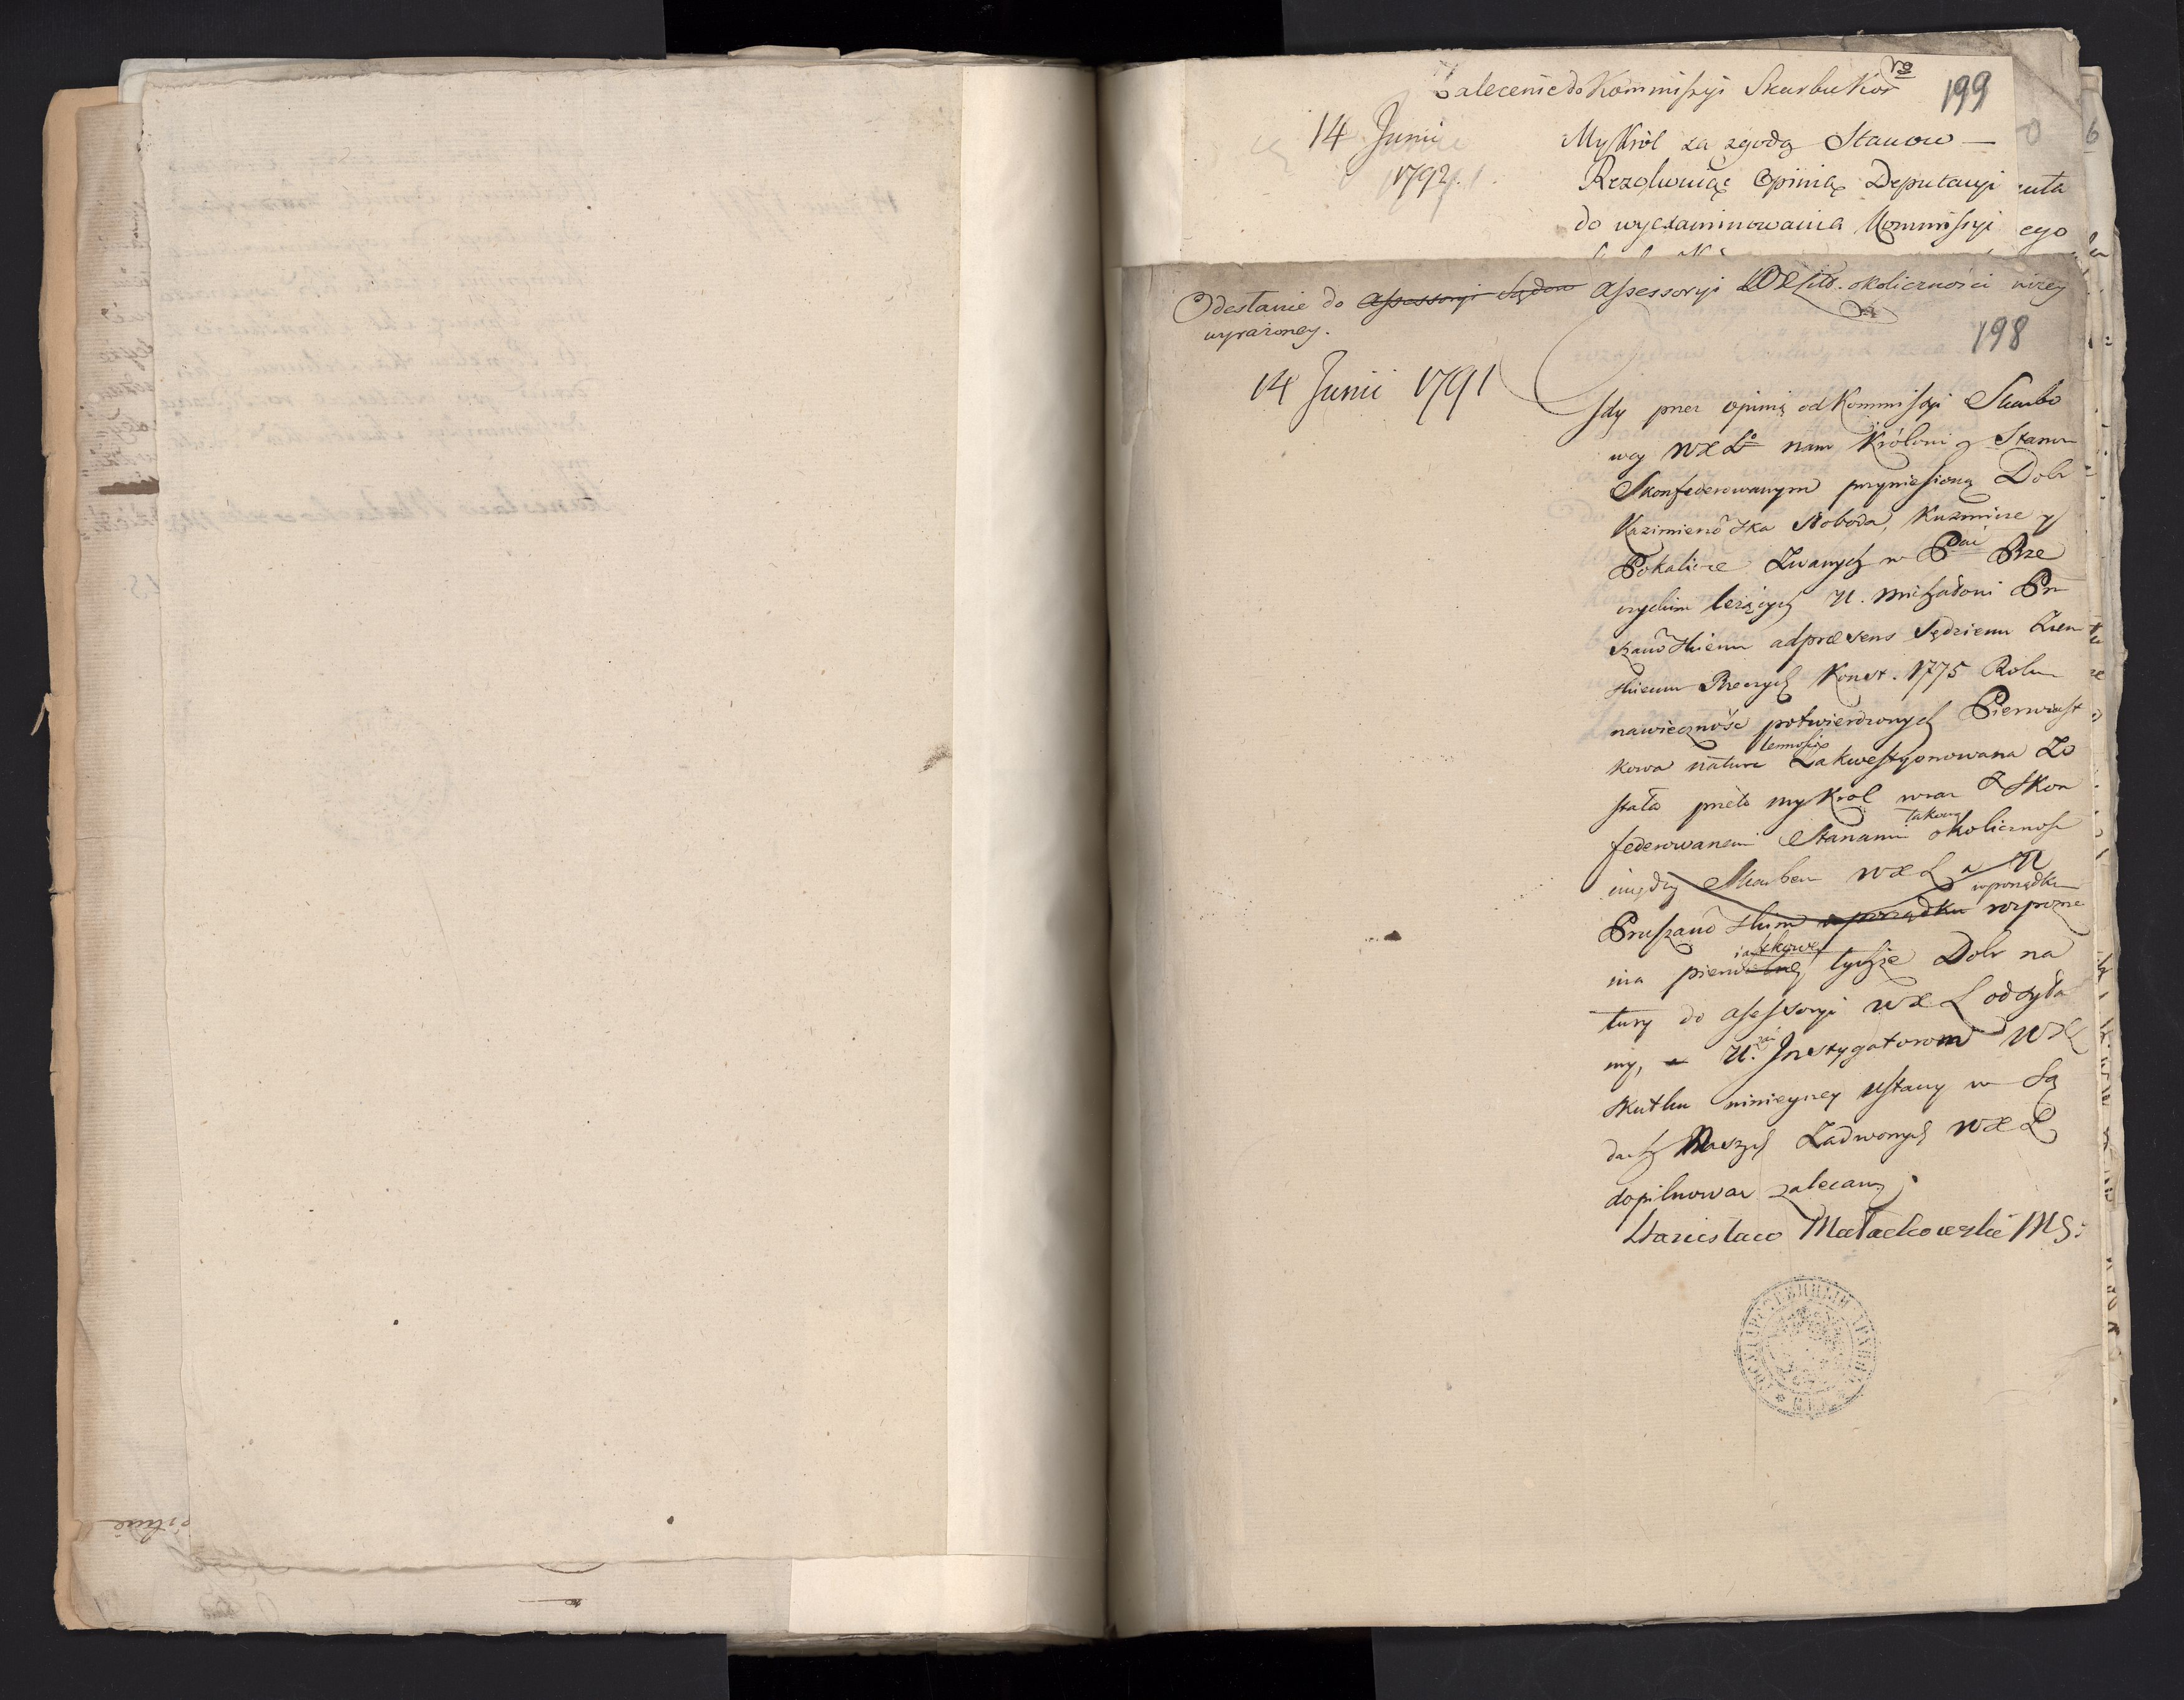 Zalecenie do Kommissyi Skarbu Kor
199
14 Junii
1792.
My Król za zgodą Stanow —
Rezolwuiąc Opinią Deputacyi
do wyexaminowania Kommissyi
Odesłanie do Assessoryi Sądow Assessoryi WXLitt. okoliczności niżey
wyrażoney.
198
14 Junii 1791
Gdy przez opinią od Kommissyi Skarbo
wey WXLo nam Królowi y Stanom
Skonfederowanym przyniesioną Dobr
Kazimierowska Słoboda, Kuzmicze y
Pokalicze Zwanych w Pcie Rze
czyckim leżących U. Michałowi Pru
szanowskiemu adpraesens Sędziemu Ziem
skiemu Rzeczyck Konst. 1775 Roku
nawieczność potwierdzonych Pierwiast
kowa natura Zakwestyonowana Zo
stała przeto my Król wraz Z Skon
federowanemi Stanami takową okoliczność
między Skarbem WXL a U
Pruszanowskim w porządku w porządku rozpozna
nia pierwiastkowey tychże Dobr na
tury do assessoryi WXL odsyła
my, a U. Instygatorom WXL
skutku ninieyszey ustawy w Są
dach Naszych Zadwornych WXL
dopilnować zalecamy.
Stanisław Małachowski MS: